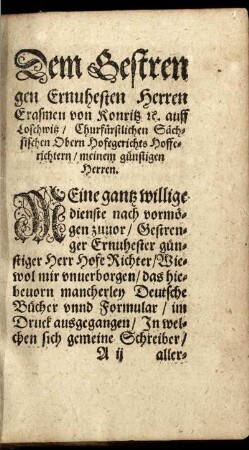 Dem Gestren
gen Ernuhesten Herren
Erasmen von Konritz ꝛc. auff
Loschwitz / Churfürstlichen Säch-
sischen Obern Hofegerichts Hoffe-
richtern / meinem günstigen
Herren.
MEine gantz willige
dienste nach vormö-
gen zuuor / Gestren-
ger Ernuhester gün-
stiger Herr Hofe Richter / Wie-
wol mir vnuerborgen / das hie-
beuorn mancherley Deutsche
Bücher vnnd Formular / im
Druck ausgegangen / In wel-
chen sich gemeine Schreiber /
A ij aller-